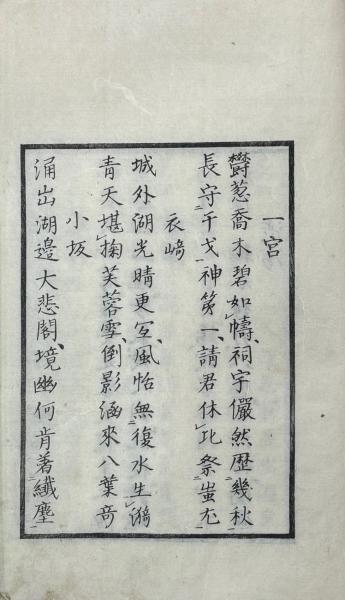 一宮
鬱葱喬木碧如幬祠宇儼然歴幾秋
長守干戈神第一請君休比祭蚩尤
衣﨑
城外湖光晴更宜風恬無復水生漪
青天堪掬芙蓉雪倒影涵來八葉竒
小坂
涌出湖邉大悲閣境幽何肯著纎塵